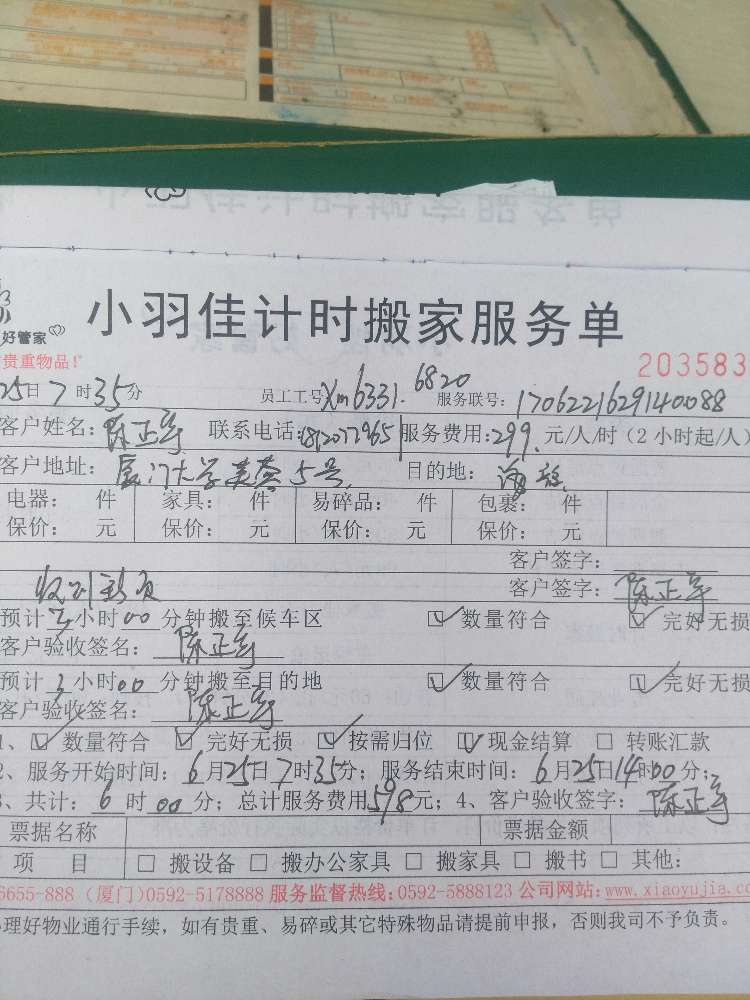 小羽佳计时搬家服务单
好管家
贵重物品！
203583
25日7时35分 员工工号Xm6331.6820 服务联号:1706221629140088
客户姓名:陈正宇 联系电话: 服务费用:299.元/人/时(2小时起/人)
客户地址:厦门大学芙蓉5号. 目的地:
电器: 件 家具: 件 易碎品: 件 包裹: 件
保价: 元 保价: 元 保价: 元 保价: 元
客户签字:
客户签字:陈正宇
预计 小时00分钟搬至候车区 ☑数量符合 ☑完好无损
客户验收签名:陈正宇
预计3小时00分钟搬至目的地 ☑数量符合 ☑完好无损
客户验收签名:陈正宇
1、☑数量符合 ☑完好无损 ☑按需归位 ☑现金结算 □转账汇款
2、服务开始时间:6月25日7时35分;服务结束时间:6月25日14时00分;
3、共计:6时00分;总计服务费用598元;4、客户验收签字:陈正宇
票据名称 票据金额
项 目 □搬设备 □搬办公家具 □搬家具 □搬书 □其他:
6655-888(厦门)0592-5178888 服务监督热线:0592-5888123 公司网站:www.xiaoyujia.c
理好物业通行手续,如有贵重、易碎或其它特殊物品请提前申报,否则我司不予负责。